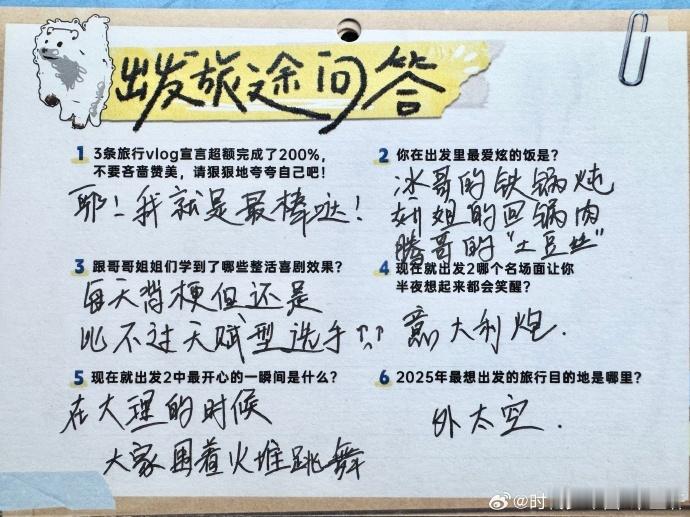 出发旅途问答
1 3条旅行vlog宣言超额完成了200%，
不要吝啬赞美，请狠狠地夸夸自己吧！
耶！我就是最棒哒！
2 你在出发里最爱炫的饭是？
冰哥的铁锅炖
姐的回锅肉
腾哥的“土豆丝”
3 跟哥哥姐姐们学到了哪些整活喜剧效果？
每天背梗但还是
比不过天赋型选手↑↑
4 现在就出发2哪个名场面让你
半夜想起来都会笑醒？
意大利炮.
5 现在就出发2中最开心的一瞬间是什么？
在大理的时候
大家围着火堆跳舞
6 2025年最想出发的旅行目的地是哪里？
外太空.
@时